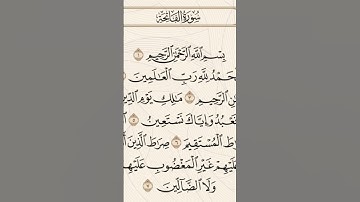 سُورَةُ الْفَاتِحَةِ
بِسْمِ ٱللَّهِ ٱلرَّحْمَٰنِ ٱلرَّحِيمِ ١
حَمْدُ لِلَّهِ رَبِّ ٱلْعَٰلَمِينَ
نِ ٱلرَّحِيمِ ٣ مَٰلِكِ يَوْمِ ٱلدِّينِ
نَعْبُدُ وَإِيَّاكَ نَسْتَعِينُ ٥
رَٰطَ ٱلْمُسْتَقِيمَ ٦ صِرَٰطَ ٱلَّذِينَ أَ
عَلَيْهِمْ غَيْرِ ٱلْمَغْضُوبِ عَلَيْهِمْ
وَلَا ٱلضَّآلِّينَ ٧